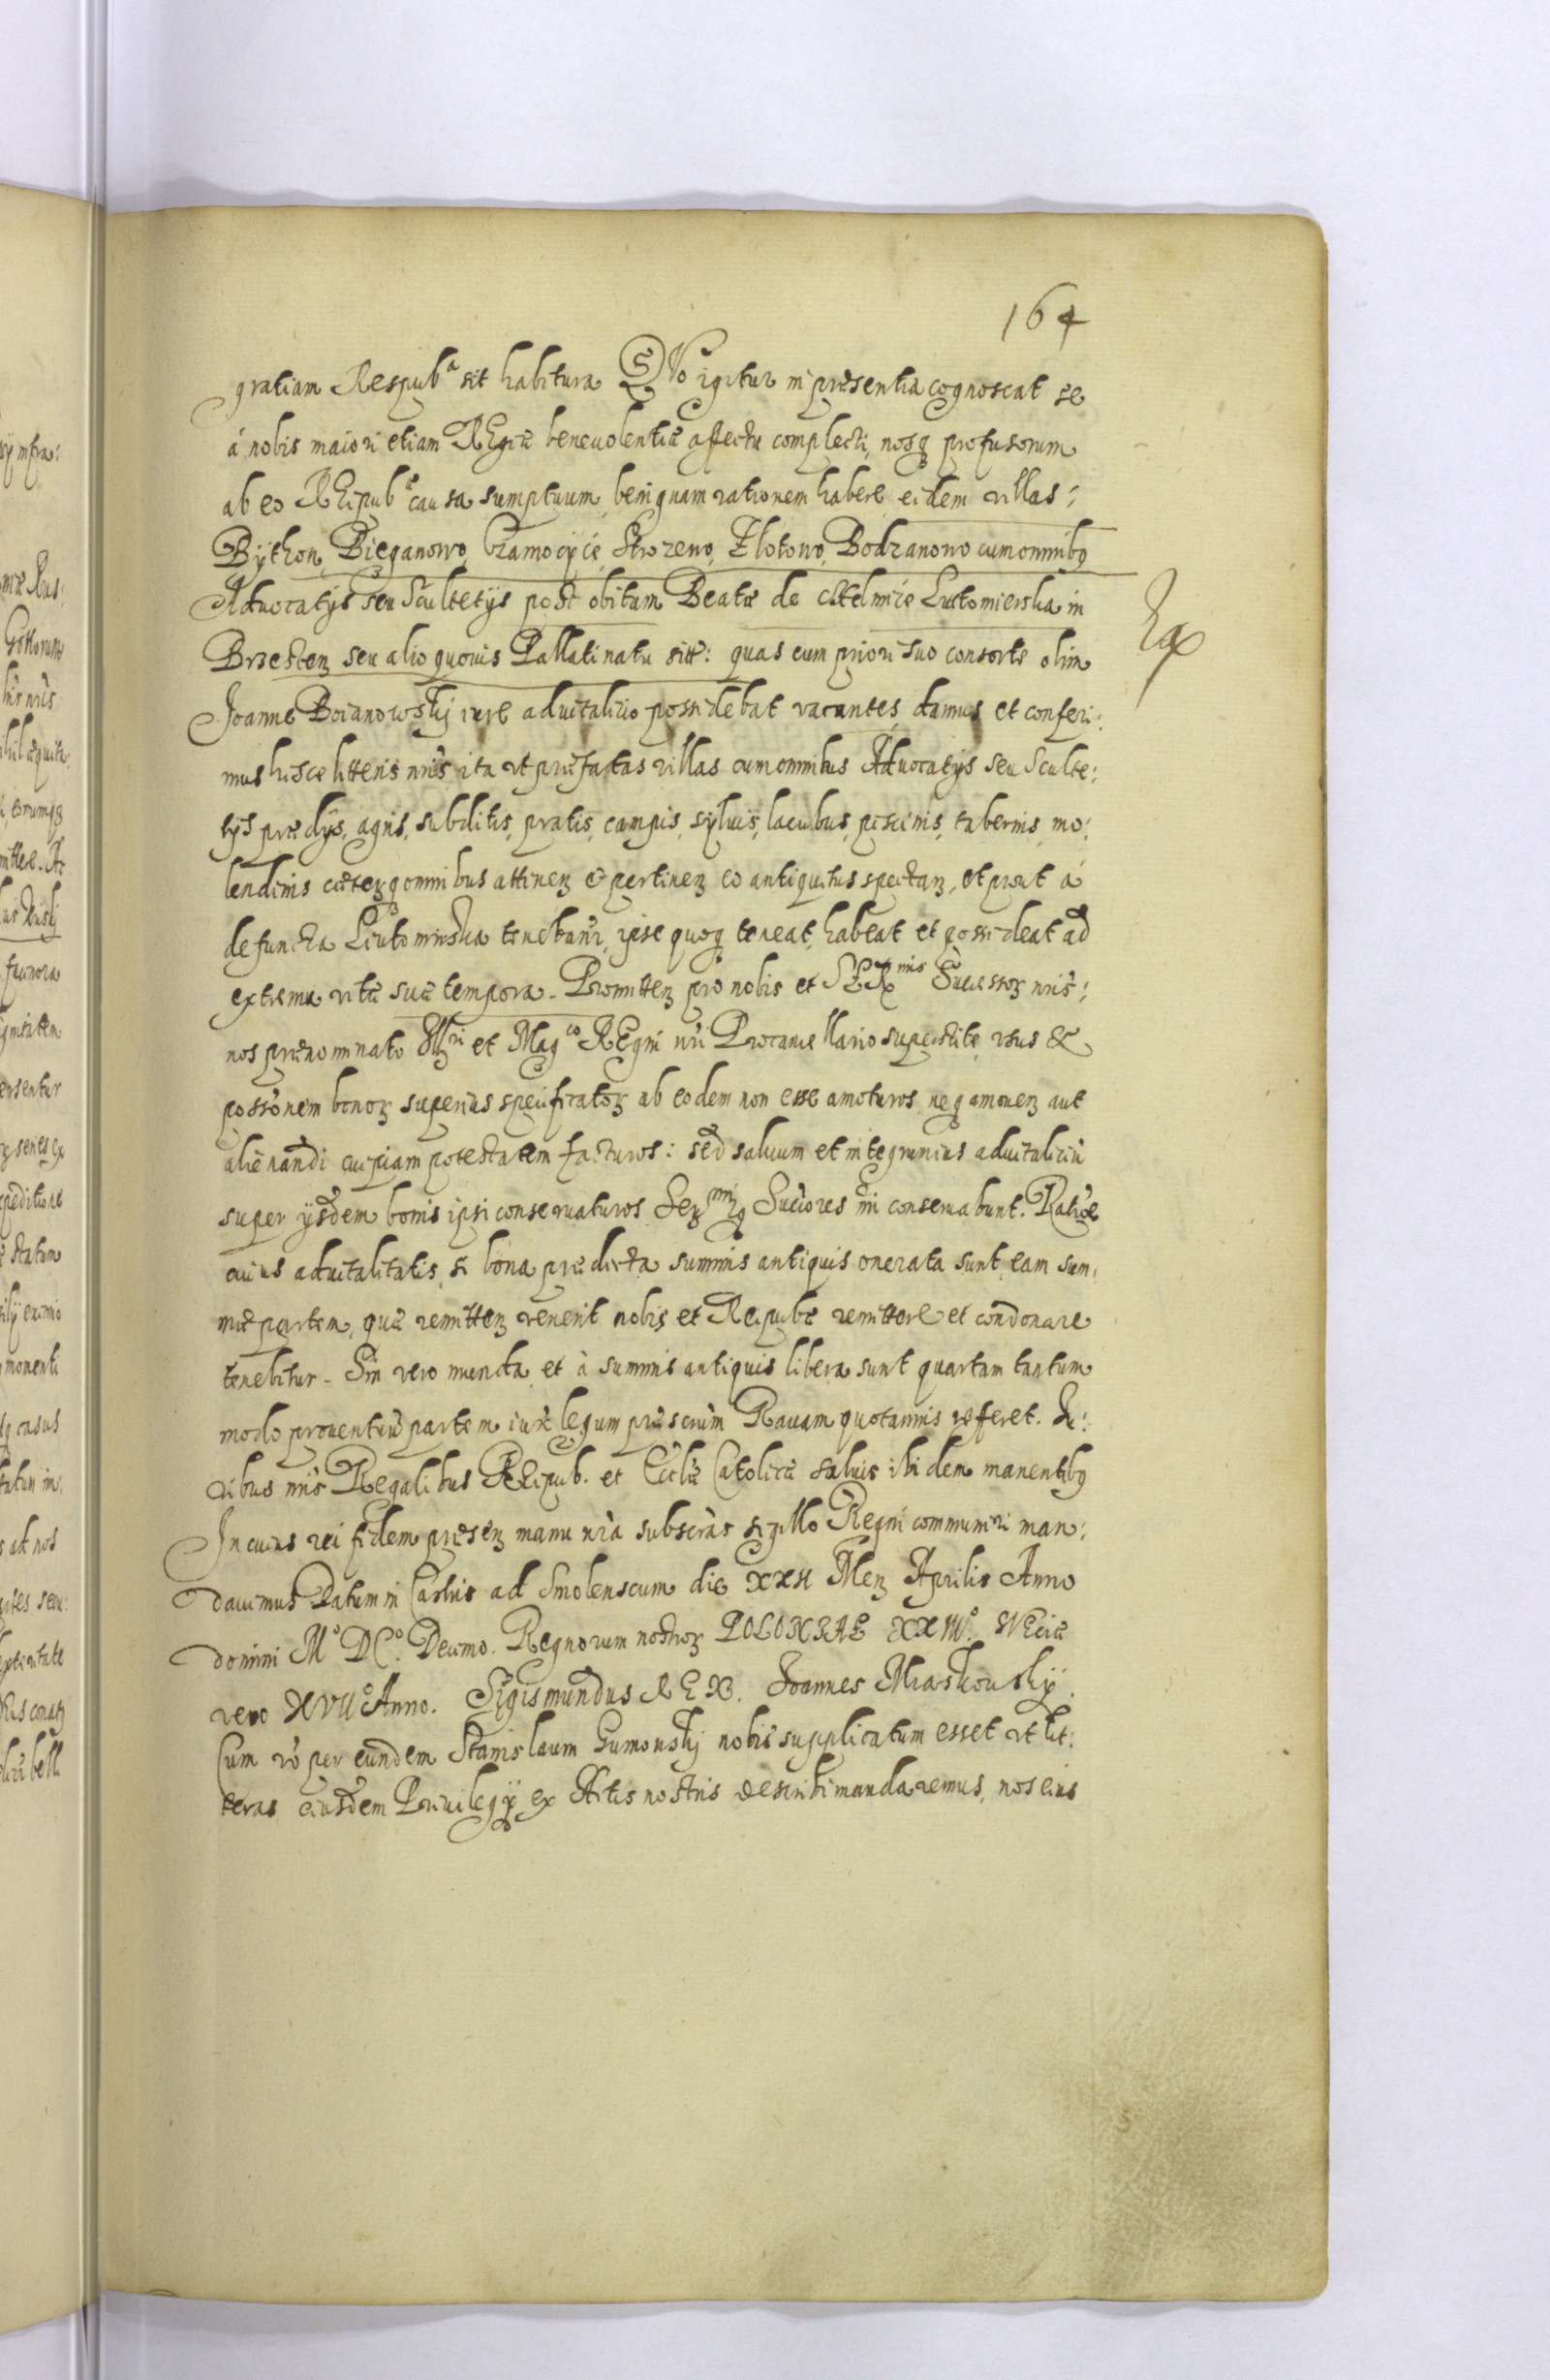 164
gratiam Respub^a sit habitura QVo igitur in præsentia cognoscat se
à nobis maiori etiam REgiæ beneuolentiæ affectu complecti, nosq profusorum
ab eo REipub^e causa sumptuum, benignam rationem habere eidem villas:
Bÿthon, Bieganowo, Stro zeno, Zlotowo, Bodzanowo cum omnibq
Aduocatijs seu Scultetijs post obitum Beatæ de Lutomierska in
Brzesten seu alio quouis Pallatinatu sitt: quas cum priori suo consorte olim
Joanne Boianowskj iure aduitalitio possidebat vacantes damus et conferi:
mus hisce litteris nris, ita vt præfatas villas cum omnibus Aduocatijs seu Sculte:
tijs prædijs, agris, subditis, pratis, campis, syluis, lacubus, piscinis, tabernis, mo:
lendinis cæterqomnibus attinen et pertinen eo antiquitus spectan, et prout à
defuncta Lutomirska tenebant, ipse quoq teneat, habeat et possideat ad
extrema vitæ suæ tempora. Promitten pro nobis et SER^mis Successor nris:
nos prænominato Ill^ri et Mag^co REgni nri Procancellario superstite, vsus &
possonem bonor superius specificator ab eodem non esse amoturos neq amouen aut
alienandi cuipiam potestatem facturos: sed saluum et integrum ius aduitalitiu
super ijsdem bonis ipsi conseruaturos Ser^miq Succores nri conseruabunt. Ratioe
cuius aduitalitatis, si bona prædicta summis antiquis onerata sunt, eam sum:
mæ partem, quæ remitten venerit nobis et Reipubæ remittere et condonare
tenebitur. Sin vero munda et à summis antiquis libera sunt quartam tantum
modo prouentuum partem iuxt legum præscrum Rauam quotannis refferet. Iu:
ribus nris Regalibus REipub. et Ecclæ Catolicæ saluis ibidem manentibq
In cuius rei fidem præsen manu nrà subscras sigillo Regni communiri man:
dauimus Datum in Castris ad Smolenscum die XXII Men Aprilis Anno
domini M° DC° Decimo. Regnorum nostror POLONIAE XXIII° SVEciæ
vero XVII° Anno. Sigismundus REX. Joannes Miaskouskÿ.
Cum vo per eundem Stanislaum Gumouskj nobis supplicatum esset vt lit:
teras eiusdem Priuilegij ex Actis nostris describi mandaremus, nos eius